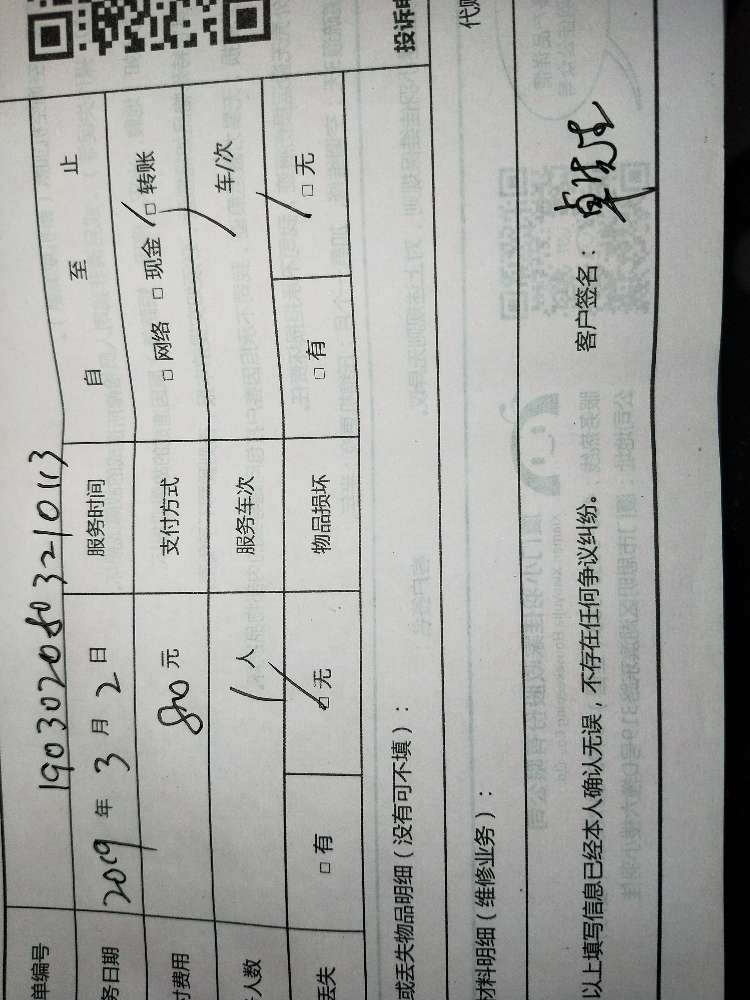 投诉
代
单编号 1903020803210113
务日期 2019 年 3 月 2 日 服务时间 自 至 止
付费用 800 元 支付方式 □ 网络 □ 现金 □ 转账
人数 1 人 服务车次 / 车/次
丢失 □ 有 □ 无 物品损坏 □ 有 □ 无
或丢失物品明细（没有可不填）：
材料明细（维修业务）：
以上填写信息已经本人确认无误，不存在任何争议纠纷。 客户签名：